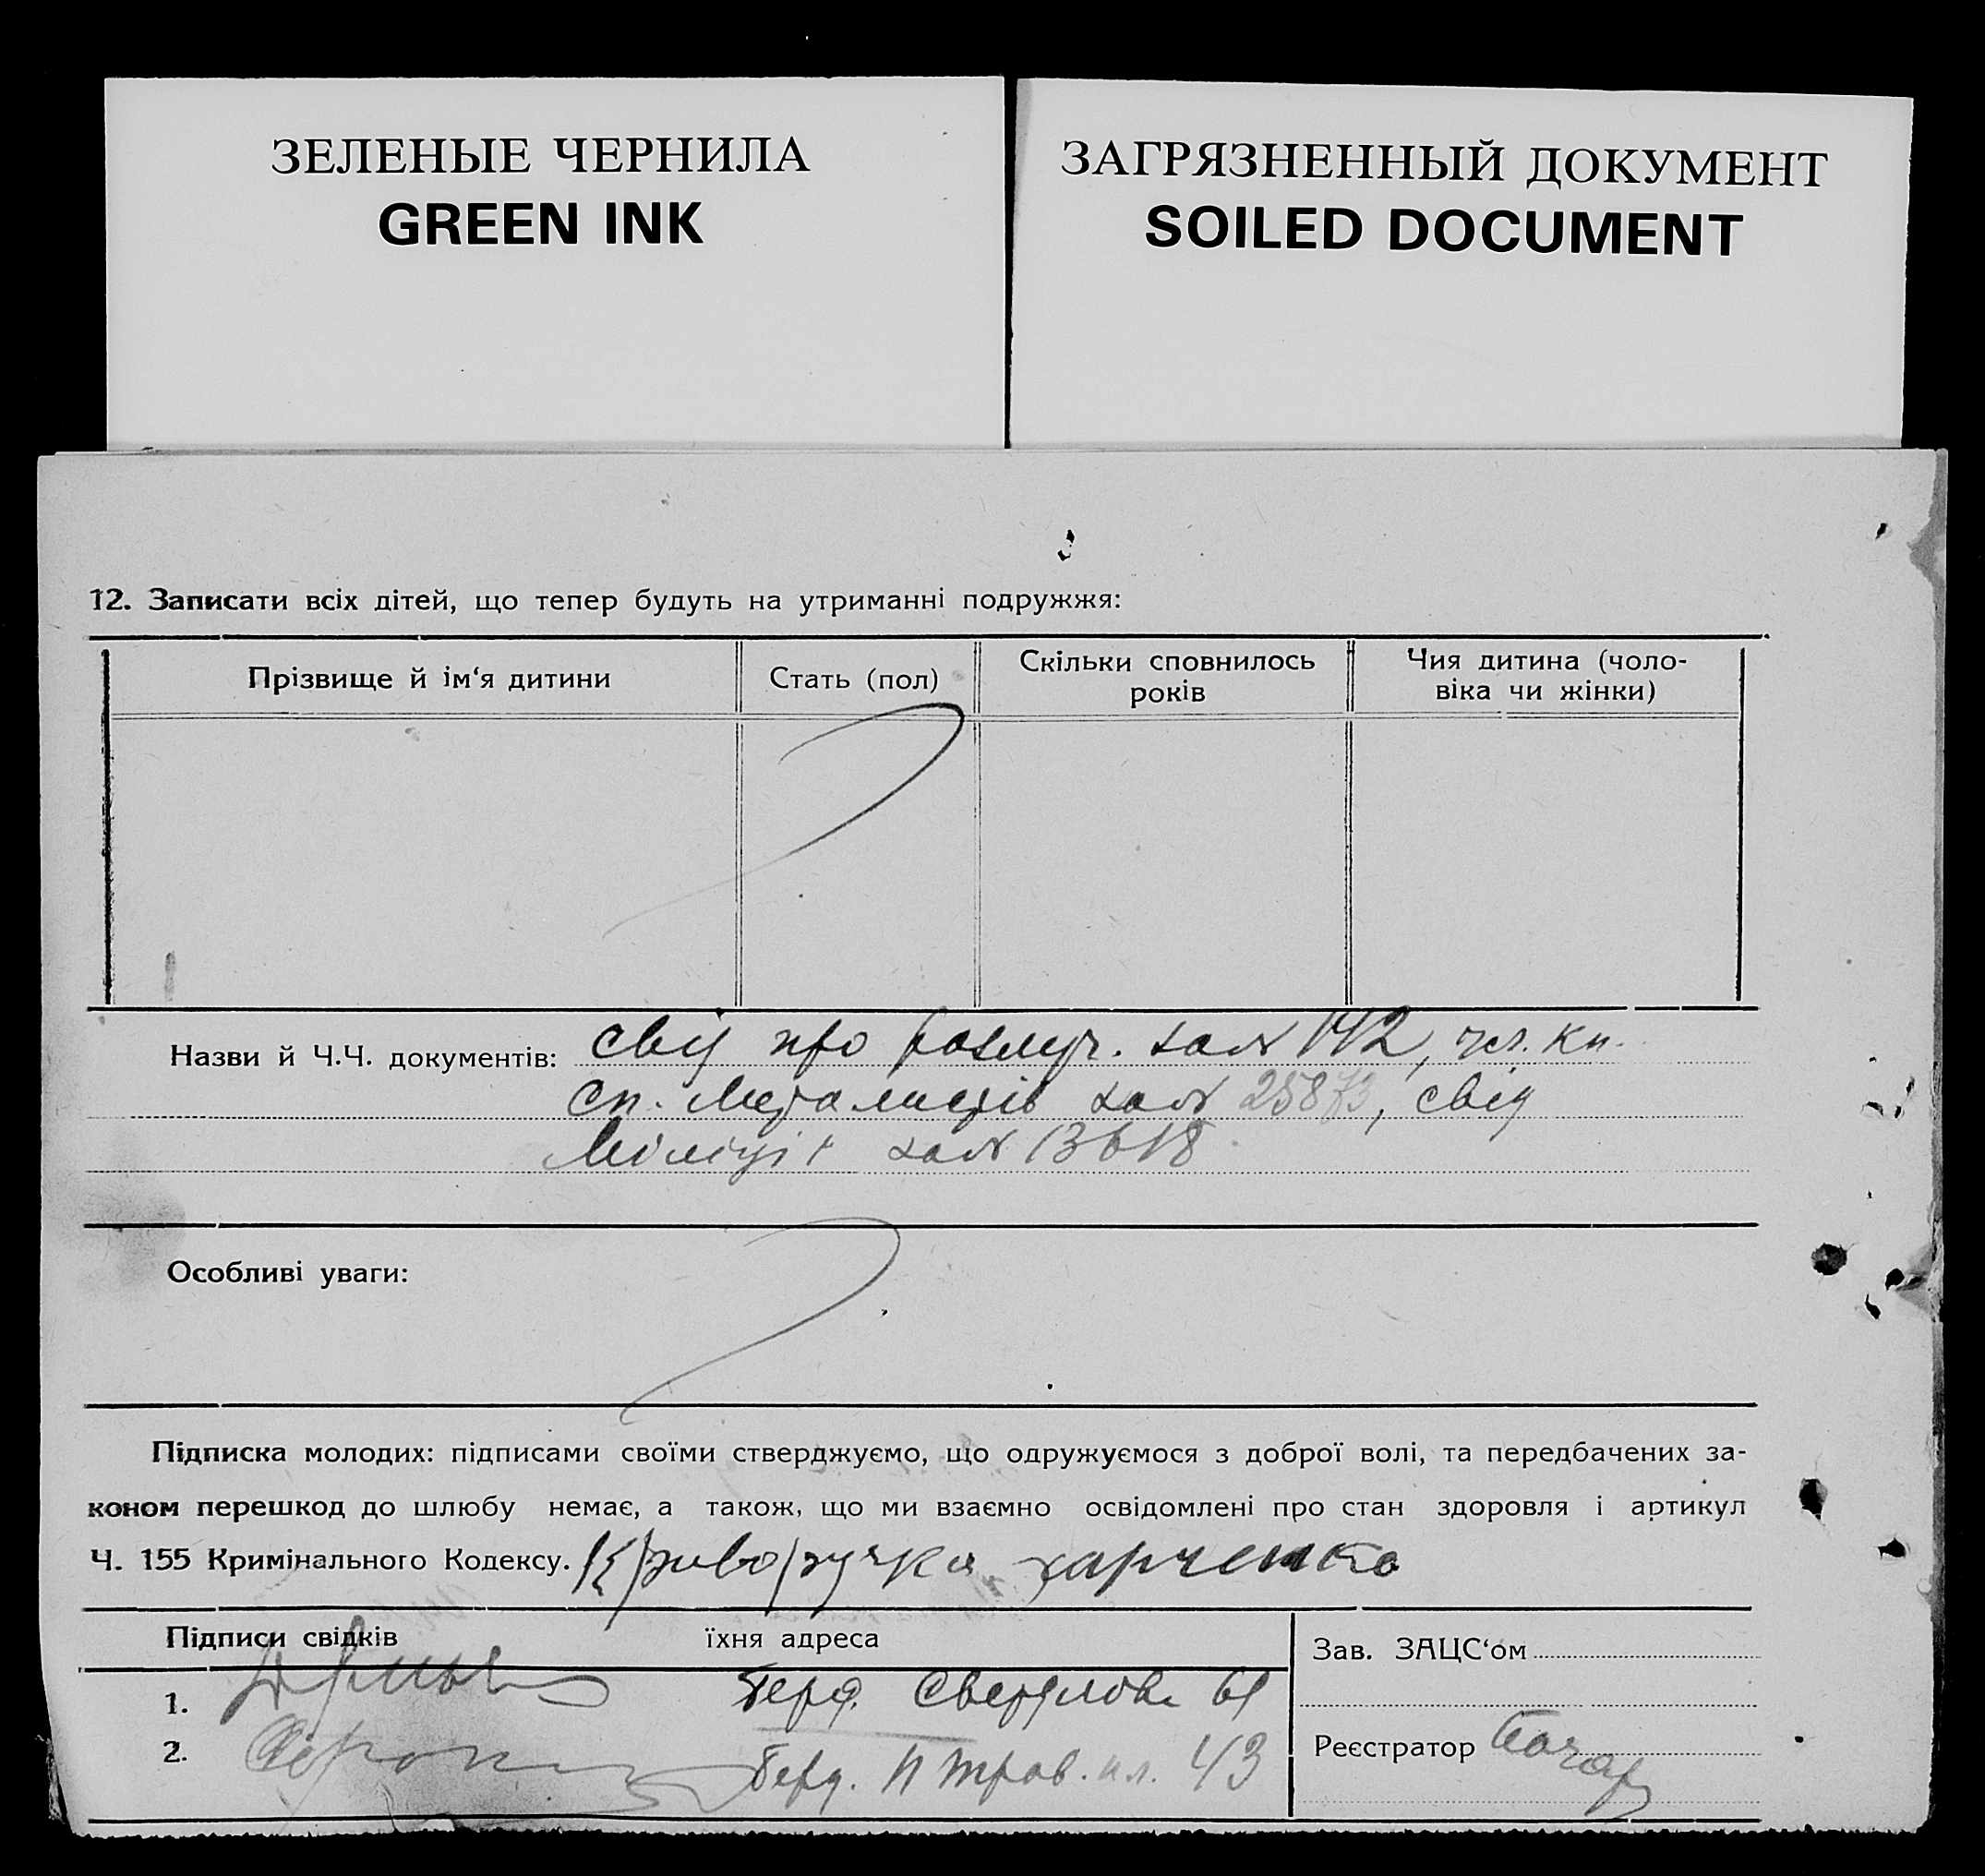 ЗЕЛЕНЫЕ ЧЕРНИЛА
GREEN INK
ЗАГРЯЗНЕННЫЙ ДОКУМЕНТ
SOILED DOCUMENT
12. Записати всіх дітей, що тепер будуть на утриманні подружжя:
Прізвище й ім‘я дитини
Стать (пол)
Скільки сповнилось
років
Чия дитина (чоло-
віка чи жінки)
Назви й Ч.Ч. документів: свід про розлуч. за № 142, чл. кн.
сп. Металистів за № 25873, свід
Міліції за № 13618
Особливі уваги:
Підписка молодих: підписами своїми стверджуємо, що одружуємося з доброї волі, та передбачених за-
коном перешкод до шлюбу немає, а також, що ми взаємно освідомлені про стан здоровля і артикул
Ч. 155 Кримінального Кодексу. Криворучка Харченко
Підписи свідків
їхня адреса
Зав. ЗАЦС‘ом
1. Берд. Свердлова 61
2. Берд. 43
Реєстратор